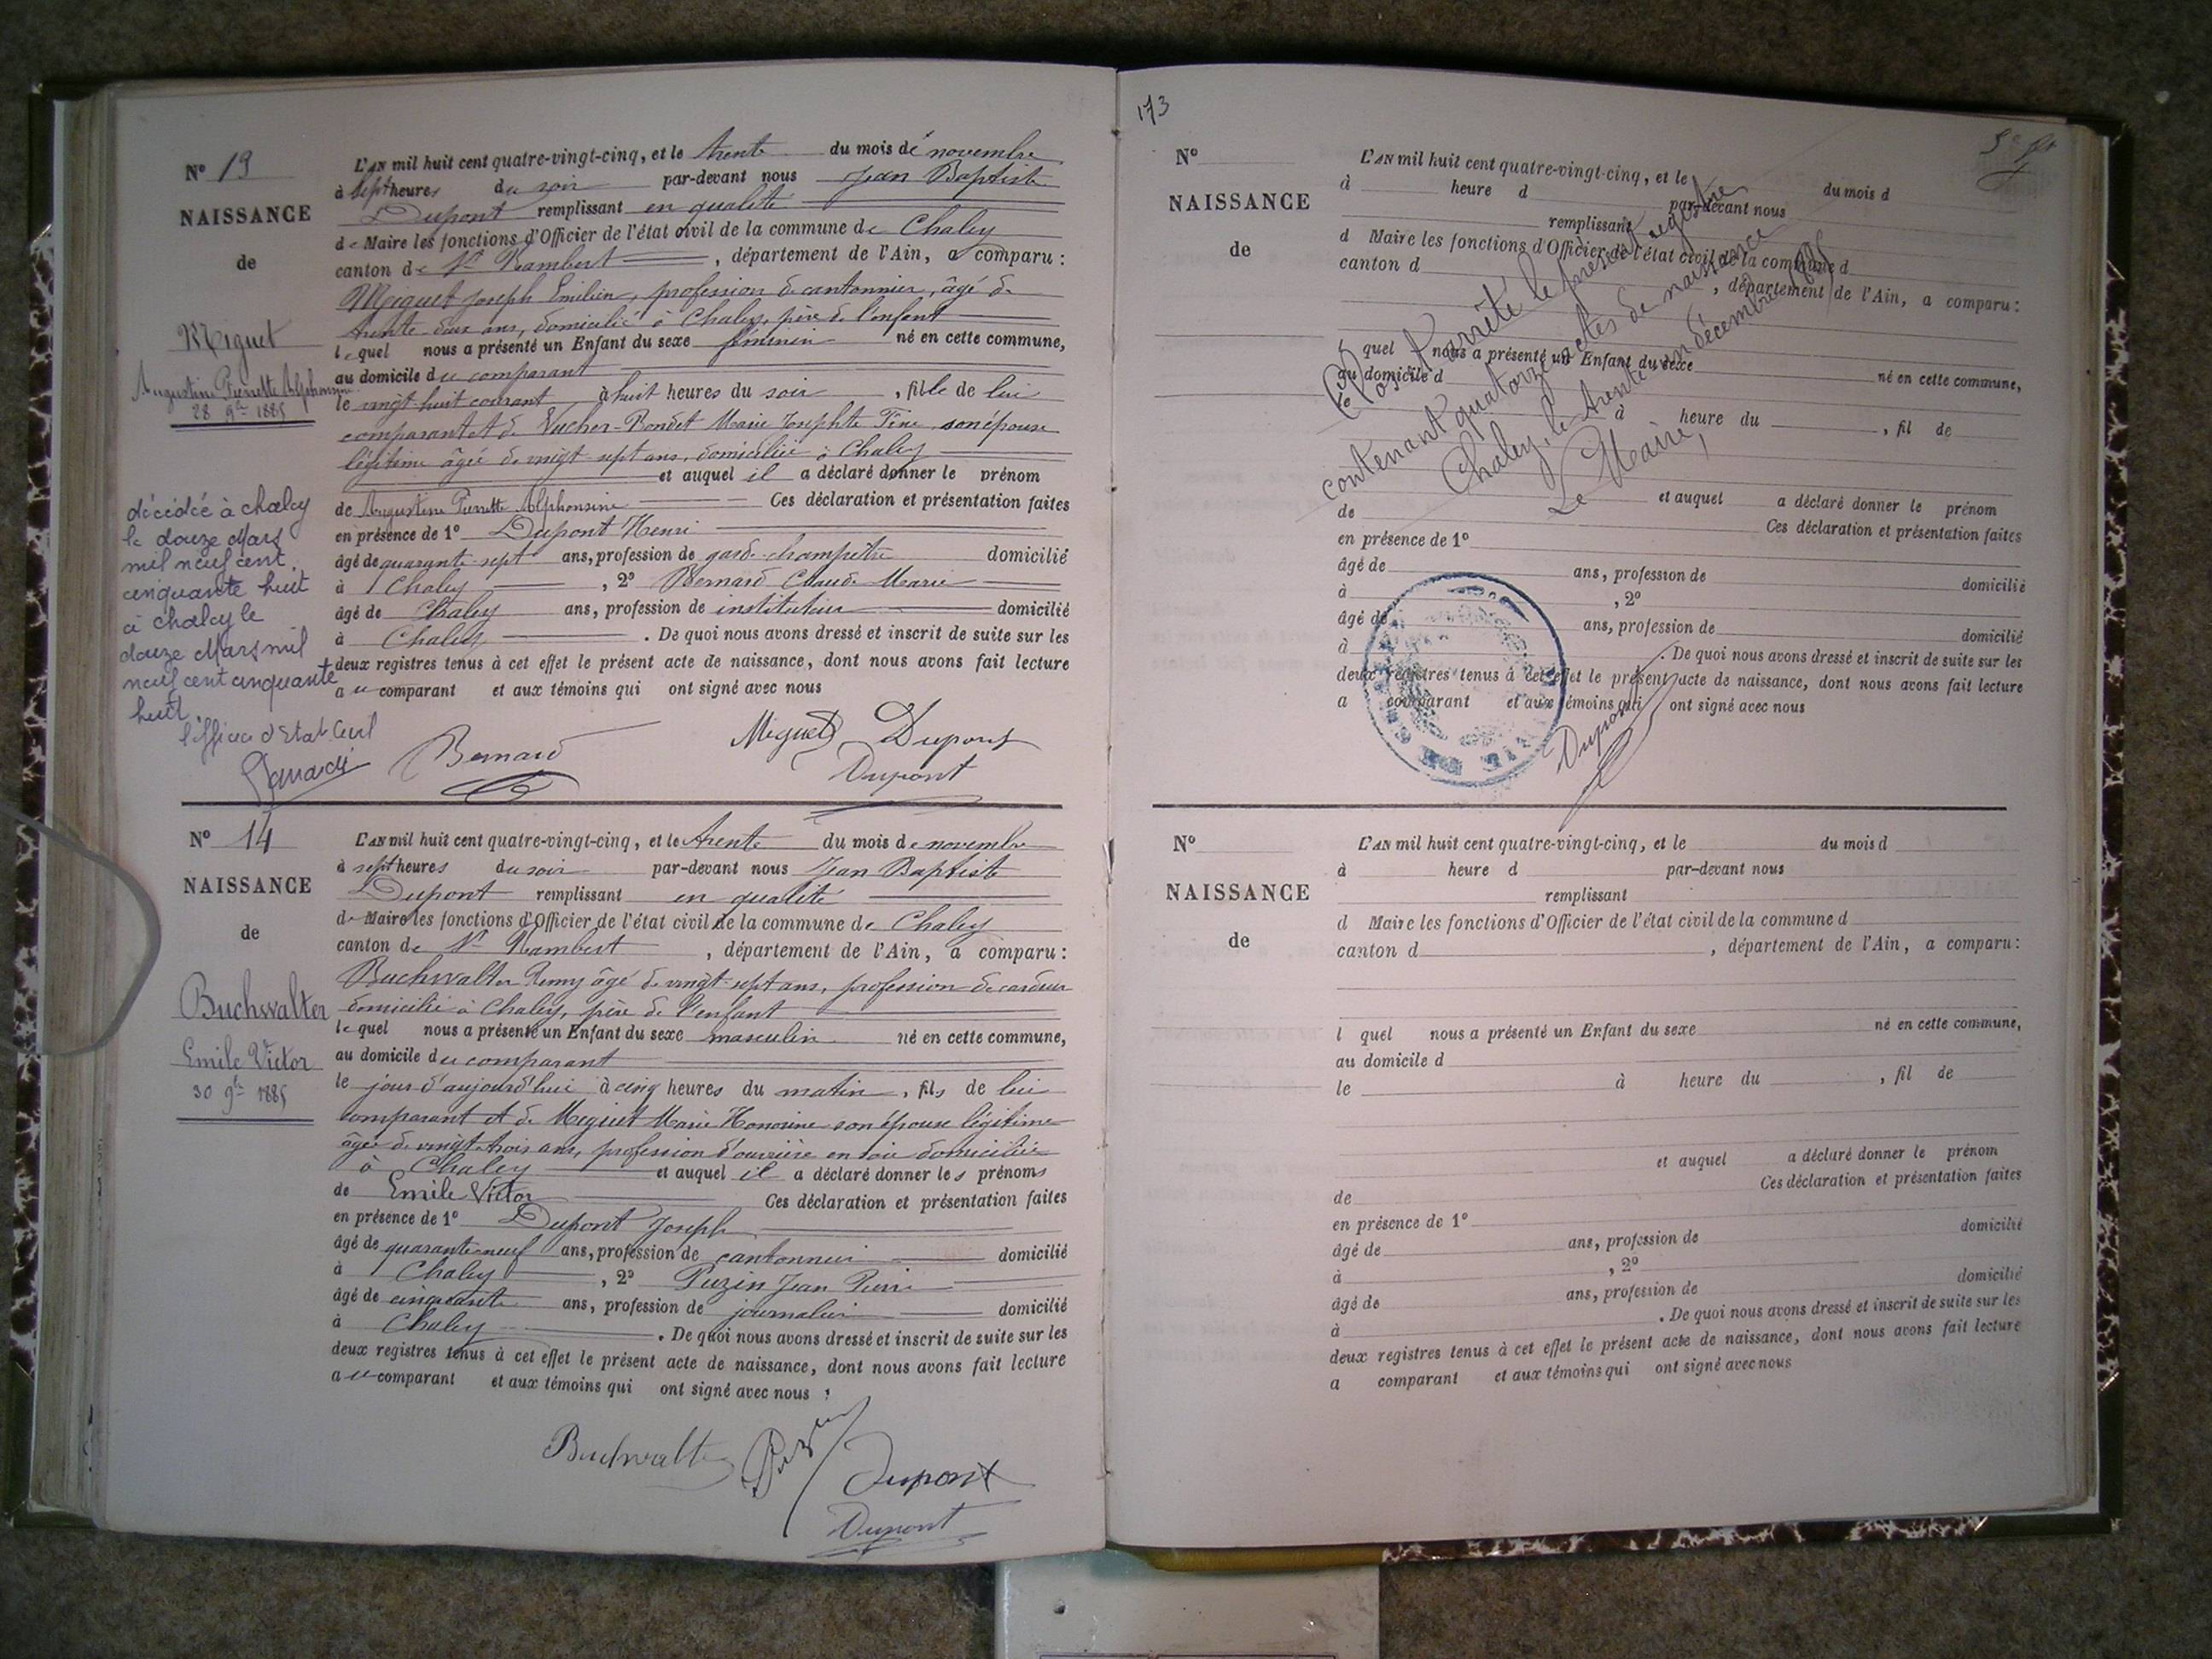 N° 13
NAISSANCE
de
Miguet
Augustine Pierrette Alphonsine
28 9bre 1885
décédée à chaley
le douze Mars
mil neuf cent
cinquante huit
à chaley le
douze Mars mil
neuf cent cinquante
huit.
l'officier d'Etat Civil
L'AN mil huit cent quatre-vingt-cinq, et le trente du mois de novembre
à sept heures du soir par-devant nous Jean Baptiste
Dupont remplissant en qualité
de Maire les fonctions d'Officier de l'état civil de la commune de Chaley
canton de St Rambert, département de l'Ain, a comparu :
Miguet Joseph Emilien, profession de cantonnier, âgé de
trente deux ans, domicilié à Chaley, père de l'enfant
lequel nous a présenté un Enfant du sexe féminin né en cette commune,
au domicile du comparant
le vingt huit courant à huit heures du soir, fille de lui
comparant et de Vucher-Bondet Marie Josephte Fine son épouse
légitime âgée de vingt-sept ans, domiciliée à Chaley
et auquel il a déclaré donner le prénom
de Augustine Pierrette Alphonsine Ces déclaration et présentation faites
en présence de 1° Dupont Henri
âgé de quarante-sept ans, profession de garde-champêtre domicilié
à Chaley, 2° Bernard Claude Marie
âgé de Chaley ans, profession de instituteur domicilié
à Chaley. De quoi nous avons dressé et inscrit de suite sur les
deux registres tenus à cet effet le présent acte de naissance, dont nous avons fait lecture
au comparant et aux témoins qui ont signé avec nous
Bernard Miguet Dupont
Dupont
N° 14
NAISSANCE
de
Buchwalter
Emile Victor
30 9bre 1885
L'AN mil huit cent quatre-vingt-cinq, et le trente du mois de novembre
à sept heures du soir par-devant nous Jean Baptiste
Dupont remplissant en qualité
de Maire les fonctions d'Officier de l'état civil de la commune de Chaley
canton de St Rambert, département de l'Ain, a comparu :
Buchwalter Remy âgé de vingt-sept ans, profession de cardeur
domicilié à Chaley, père de l'enfant
lequel nous a présenté un Enfant du sexe masculin né en cette commune,
au domicile du comparant
le jour d'aujourd'hui à cinq heures du matin, fils de lui
comparant et de Miguet Marie Honorine son épouse légitime
âgée de vingt-trois ans, profession d'ouvrière en soie domiciliée
à Chaley et auquel il a déclaré donner les prénoms
de Emile Victor Ces déclaration et présentation faites
en présence de 1° Dupont Joseph
âgé de quarante-neuf ans, profession de cantonnier domicilié
à Chaley, 2° Puzin Jean Pierre
âgé de cinquante ans, profession de journalier domicilié
à Chaley. De quoi nous avons dressé et inscrit de suite sur les
deux registres tenus à cet effet le présent acte de naissance, dont nous avons fait lecture
au comparant et aux témoins qui ont signé avec nous :
Buchwalter Puzin
Dupont
Dupont
173
N°
NAISSANCE
de
L'AN mil huit cent quatre-vingt-cinq, et le du mois d
à heure d par-devant nous
remplissant
d Maire les fonctions d'Officier de l'état civil de la commune d
canton d , département de l'Ain, a comparu :
l quel nous a présenté un Enfant du sexe né en cette commune,
au domicile d
le à heure du , fil de
et auquel a déclaré donner le prénom
de Ces déclaration et présentation faites
en présence de 1°
âgé de ans, profession de domicilié
à , 2°
âgé de ans, profession de domicilié
à . De quoi nous avons dressé et inscrit de suite sur les
deux registres tenus à cet effet le présent acte de naissance, dont nous avons fait lecture
a comparant et aux témoins qui ont signé avec nous
Clos et arrêté le présent registre
contenant quatorze actes de naissance
Chaley, le trente un décembre 1885
Le Maire,
Dupont
N°
NAISSANCE
de
L'AN mil huit cent quatre-vingt-cinq, et le du mois d
à heure d par-devant nous
remplissant
d Maire les fonctions d'Officier de l'état civil de la commune d
canton d , département de l'Ain, a comparu :
l quel nous a présenté un Enfant du sexe né en cette commune,
au domicile d
le à heure du , fil de
et auquel a déclaré donner le prénom
de Ces déclaration et présentation faites
en présence de 1°
âgé de ans, profession de domicilié
à , 2°
âgé de ans, profession de domicilié
à . De quoi nous avons dressé et inscrit de suite sur les
deux registres tenus à cet effet le présent acte de naissance, dont nous avons fait lecture
a comparant et aux témoins qui ont signé avec nous